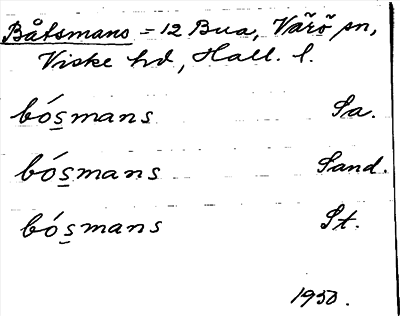 Båtsmans = 12 Bua, Värö sn,
Viske hd, Hall. l.
bós̲mans Sa.
bós̲mans Sand.
bós̲mans St.
1950.